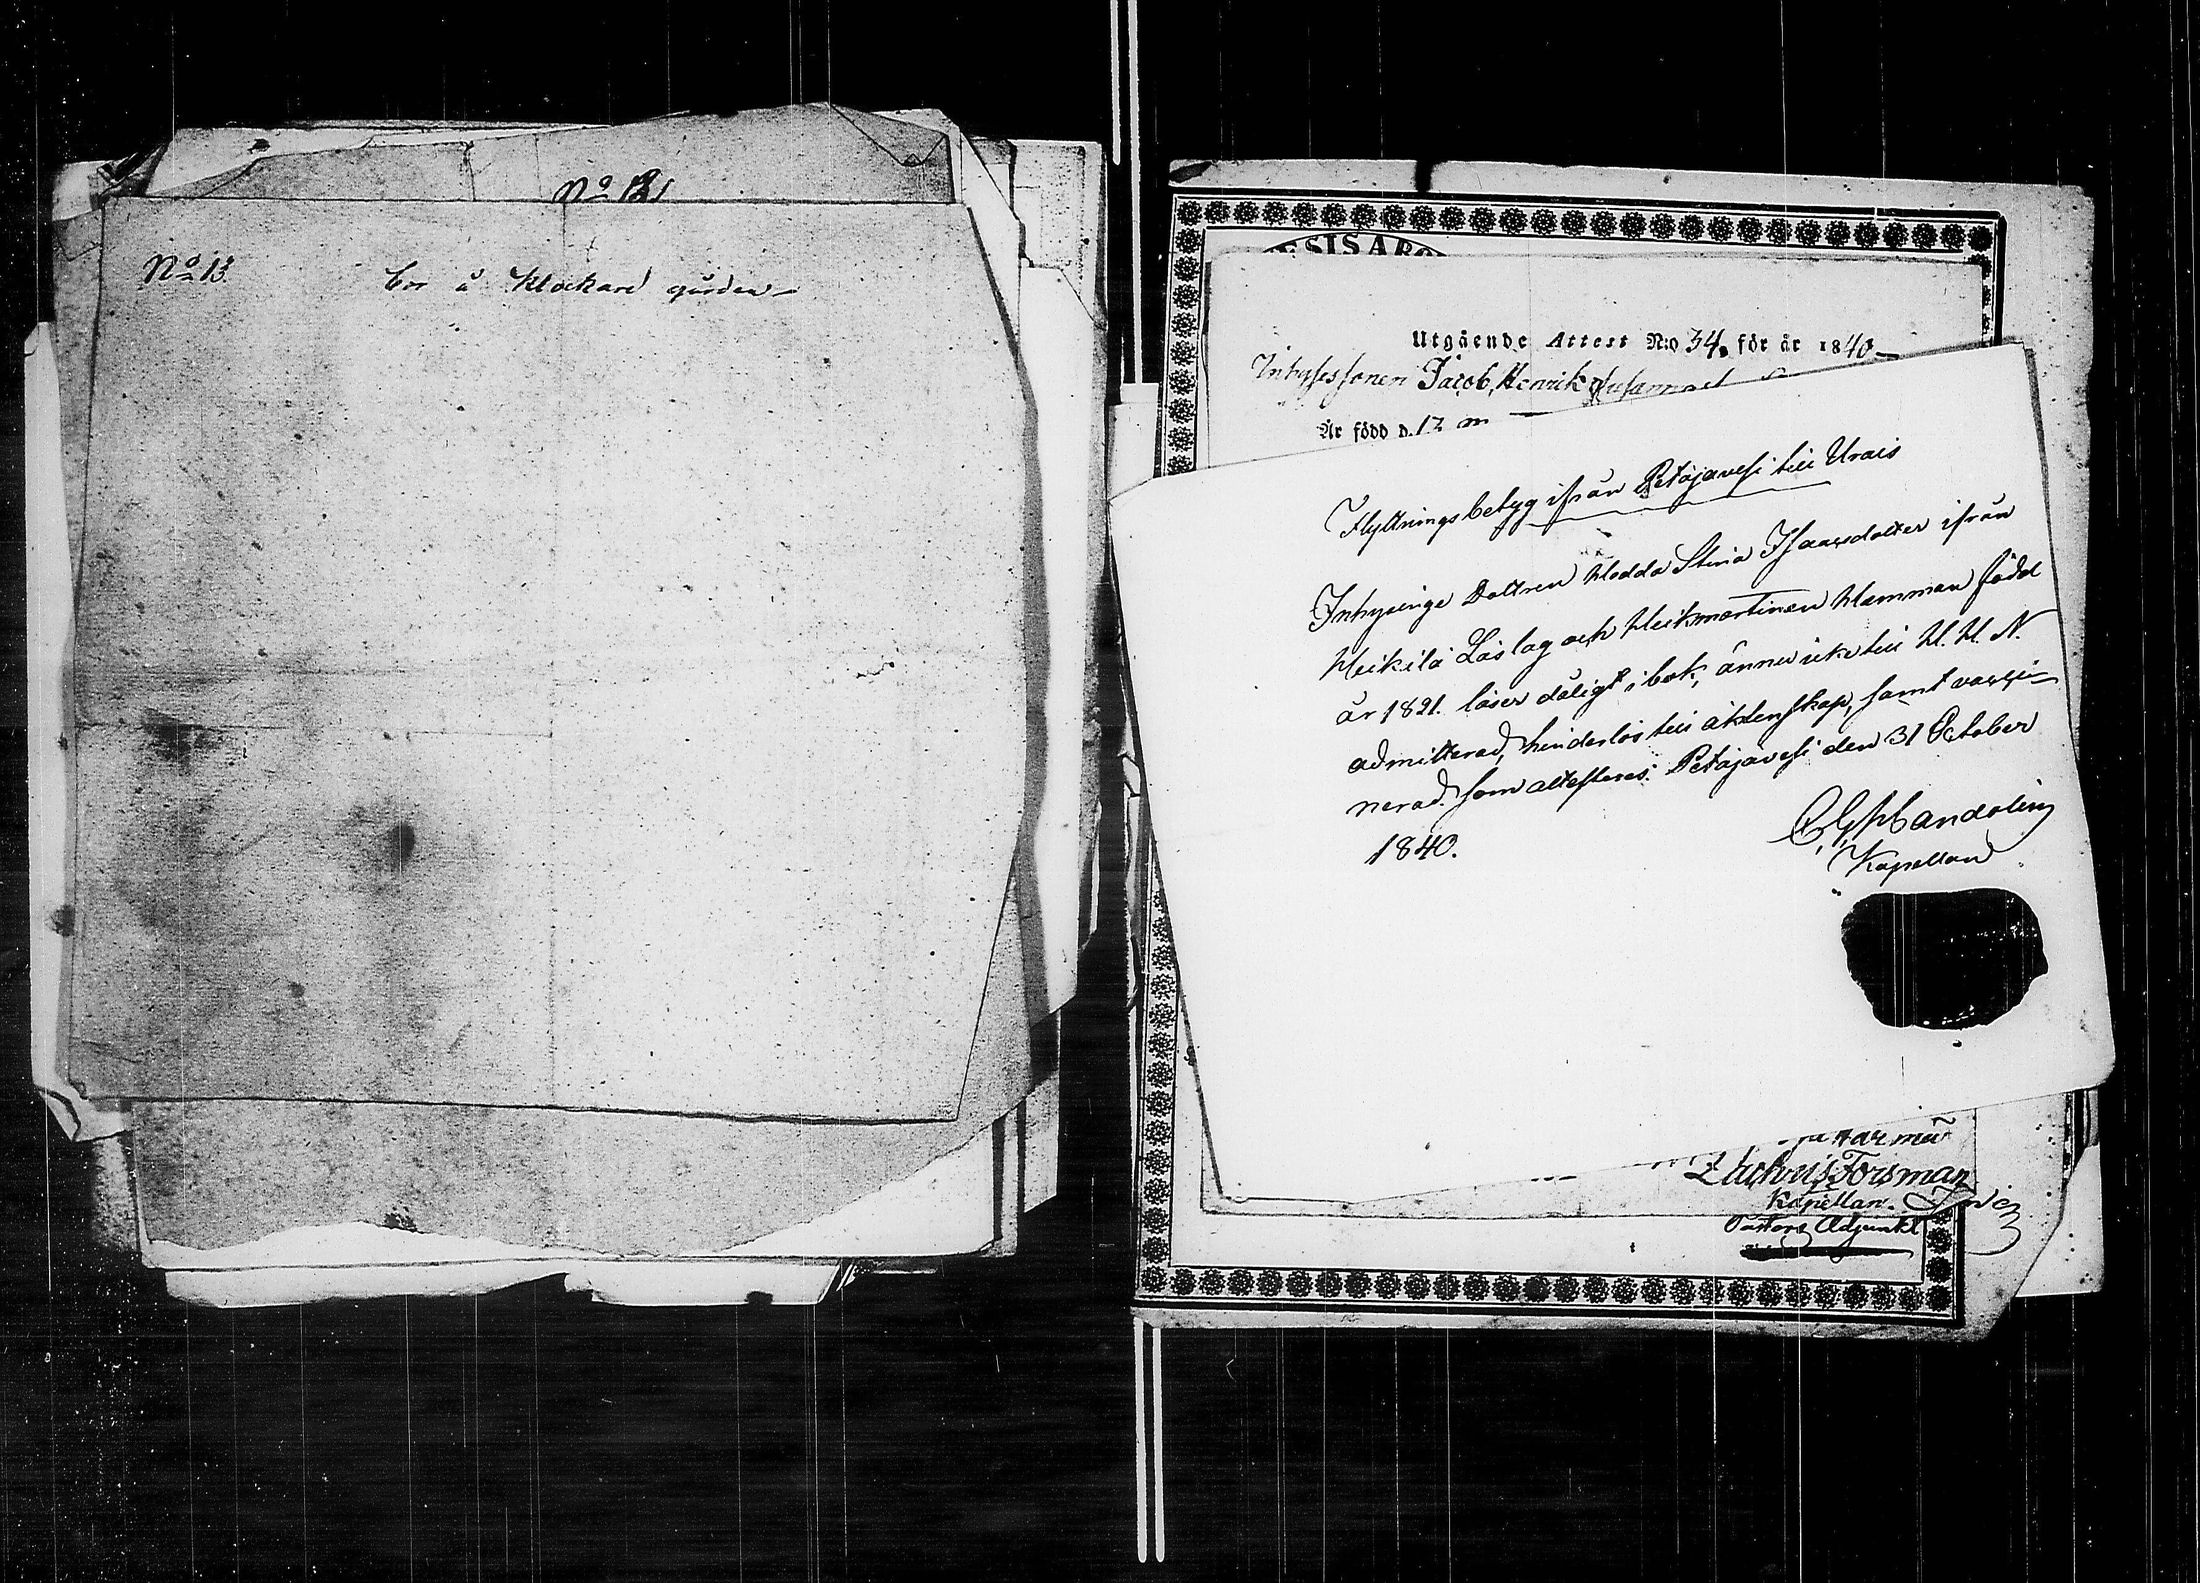 No 131
No 13.
bor å Klockare gården
ESIS ABO
Utgående Attest N:o 34. för år 1840
Inhysessonen Jacob Henrik
Är född d. 12
Flyttningsbetyg ifrån Petäjävesi till Urais
Inhysinge Dottren Hedda Stina Isaacsdotter ifrån
Heikilä Läslag och Heikmartinen Hemman född
år 1821. läser dåligt i bok, ännu icke till H. H. N.
admitterad, hinderlös till äktenskap, samt vaxsi-
nerad. som attesteras. Petäjävesi den 31 October
1840.
C. G. Candolin
Kapellan
Zachris Forsman
Kapellan.
Pastors Adjunkt